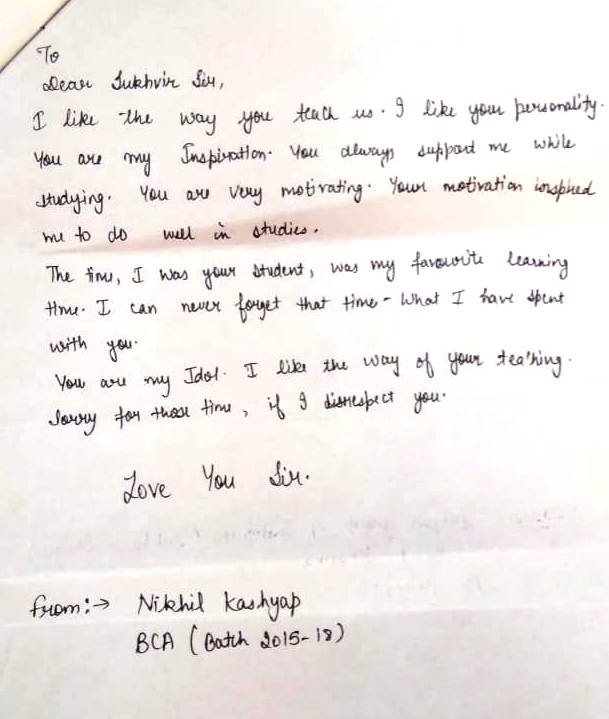 To
Dear Sukhvir Sir,
I like the way you teach us. I like your personality.
You are my Inspiration. You always support me while
studying. You are very motivating. Your motivation inspired
me to do well in studies.
The time, I was your student, was my favourite learning
time. I can never forget that time - What I have spent
with you.
You are my Idol. I like the way of your teaching.
Sorry for those time, if I disrespect you.
Love You Sir.
from:→ Nikhil Kashyap
BCA (Batch 2015-18)